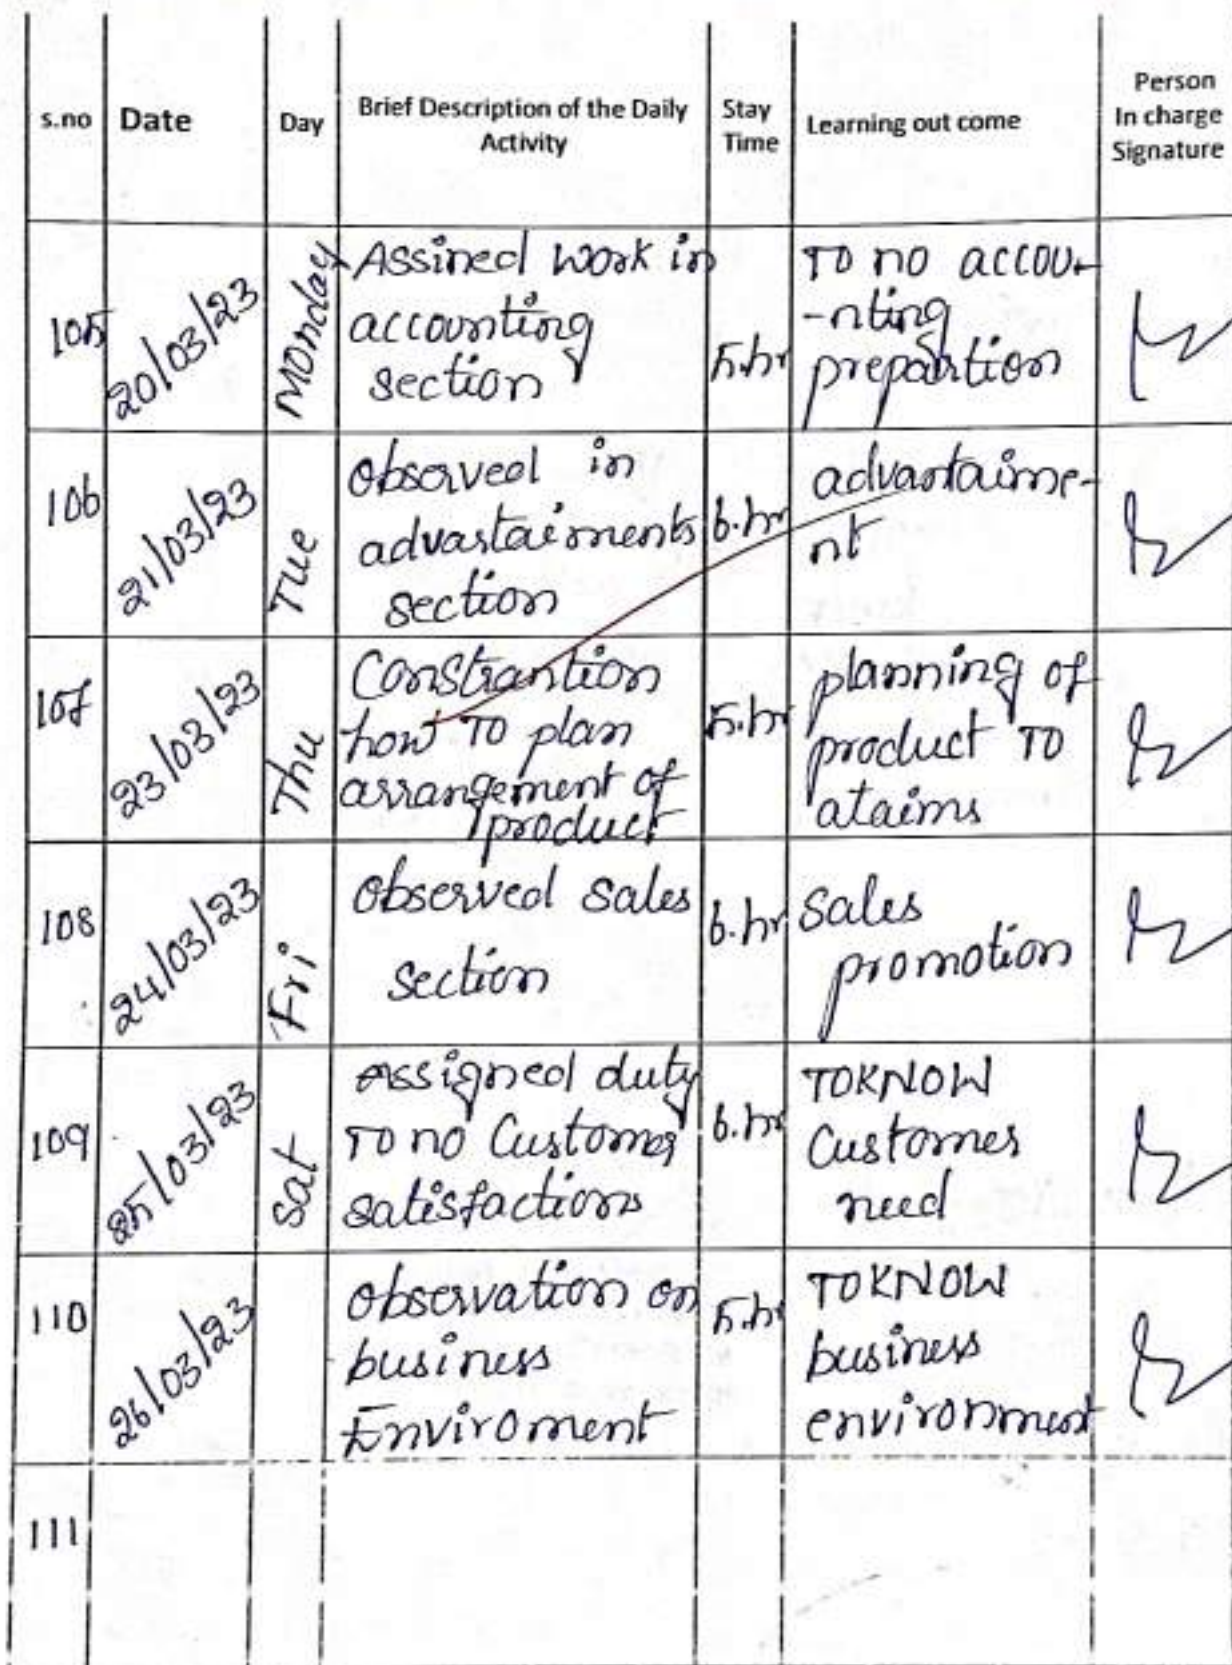 s.no Date Day Brief Description of the Daily Activity Stay Time Learning out come Person In charge Signature
105 20/03/23 Monday Assined work in
accounting
section
5.hr
To no accou-
-nting
prepartion
106 21/03/23 Tue observed in
advastaiments
section
6.hr
advastaime-
nt
107 23/03/23 Thu Constrantion
how To plan
arrangement of
product
5.hr
planning of
product To
ataims
108 24/03/23 Fri observed sales
section
6.hr
sales
promotion
109 25/03/23 Sat assigned duty
To no Customer
satisfactions
6.hr
TOKNOW
Customer
need
110 26/03/23 observation on
business
Enviroment
5.hr
TOKNOW
business
environment
111